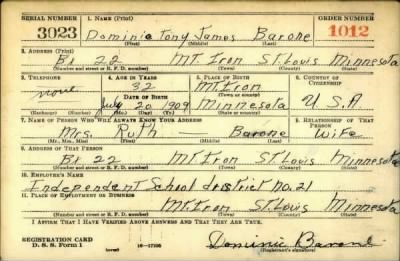 SERIAL NUMBER 1. NAME (Print) ORDER NUMBER
3023 Dominic Tony James Barone 1012
(First) (Middle) (Last)
2. ADDRESS (Print)
Bx 22 Mt. Iron St. Louis Minnesota
(Number and street or R. F. D. number) (Town) (County) (State)
3. TELEPHONE 4. AGE IN YEARS 5. PLACE OF BIRTH 6. COUNTRY OF CITIZENSHIP
none 32 Mt Iron
DATE OF BIRTH (Town or county)
July 20 1909 Minnesota U.S.A
(Exchange) (Number) (Mo.) (Day) (Yr.) (State or country)
7. NAME OF PERSON WHO WILL ALWAYS KNOW YOUR ADDRESS 8. RELATIONSHIP OF THAT PERSON
Mrs. Ruth — Barone Wife
(Mr., Mrs., Miss) (First) (Middle) (Last)
9. ADDRESS OF THAT PERSON
Bx 22 Mt. Iron St. Louis Minnesota
(Number and street or R. F. D. number) (Town) (County) (State)
10. EMPLOYER'S NAME
Independent School district no. 21
11. PLACE OF EMPLOYMENT OR BUSINESS
Mt. Iron St. Louis Minnesota
(Number and street or R. F. D. number) (Town) (County) (State)
I AFFIRM THAT I HAVE VERIFIED ABOVE ANSWERS AND THAT THEY ARE TRUE.
REGISTRATION CARD
D. S. S. Form 1 16—17105 Dominic Barone
(Registrant's signature)